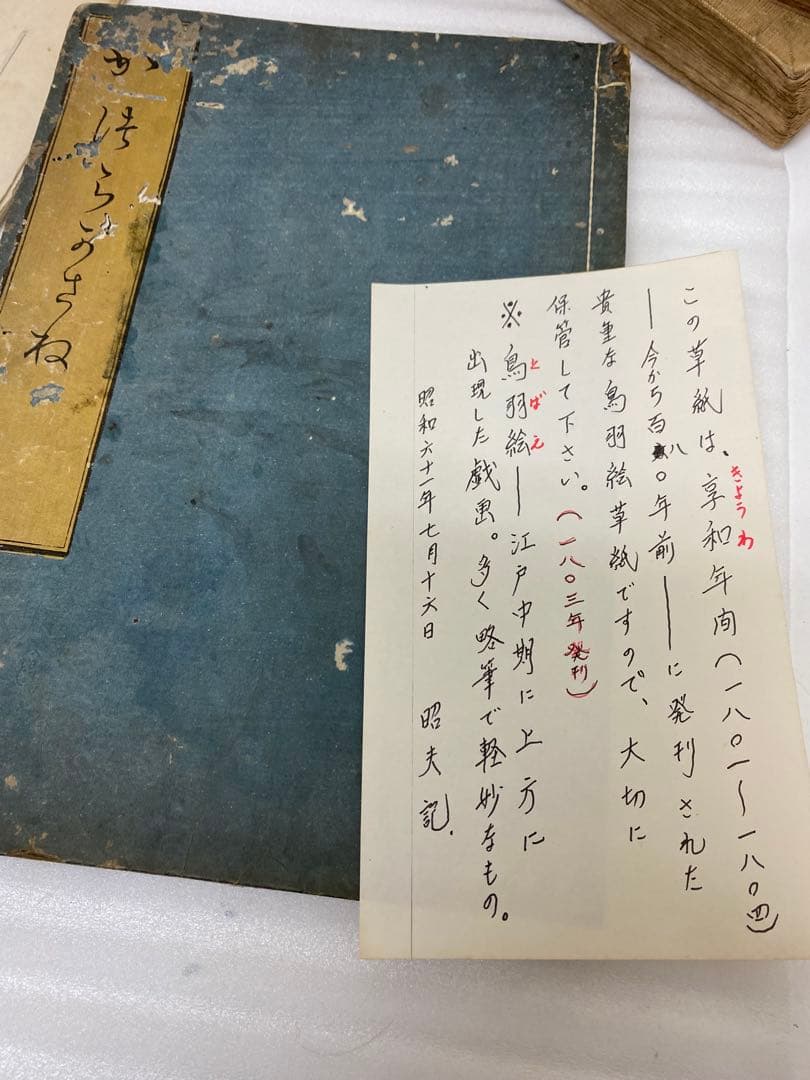 かつらかさね
この草紙は、享和年間(一八〇一〜一八〇四)
きょうわ
―今から百八〇年前―に発刊された
貴重な鳥羽絵草紙ですので、大切に
保管して下さい。(一八〇三年発刊)
※鳥羽絵―江戸中期に上方に
とばえ
出現した戯画。多く略筆で軽妙なもの。
昭和六十一年七月十六日 昭夫記.